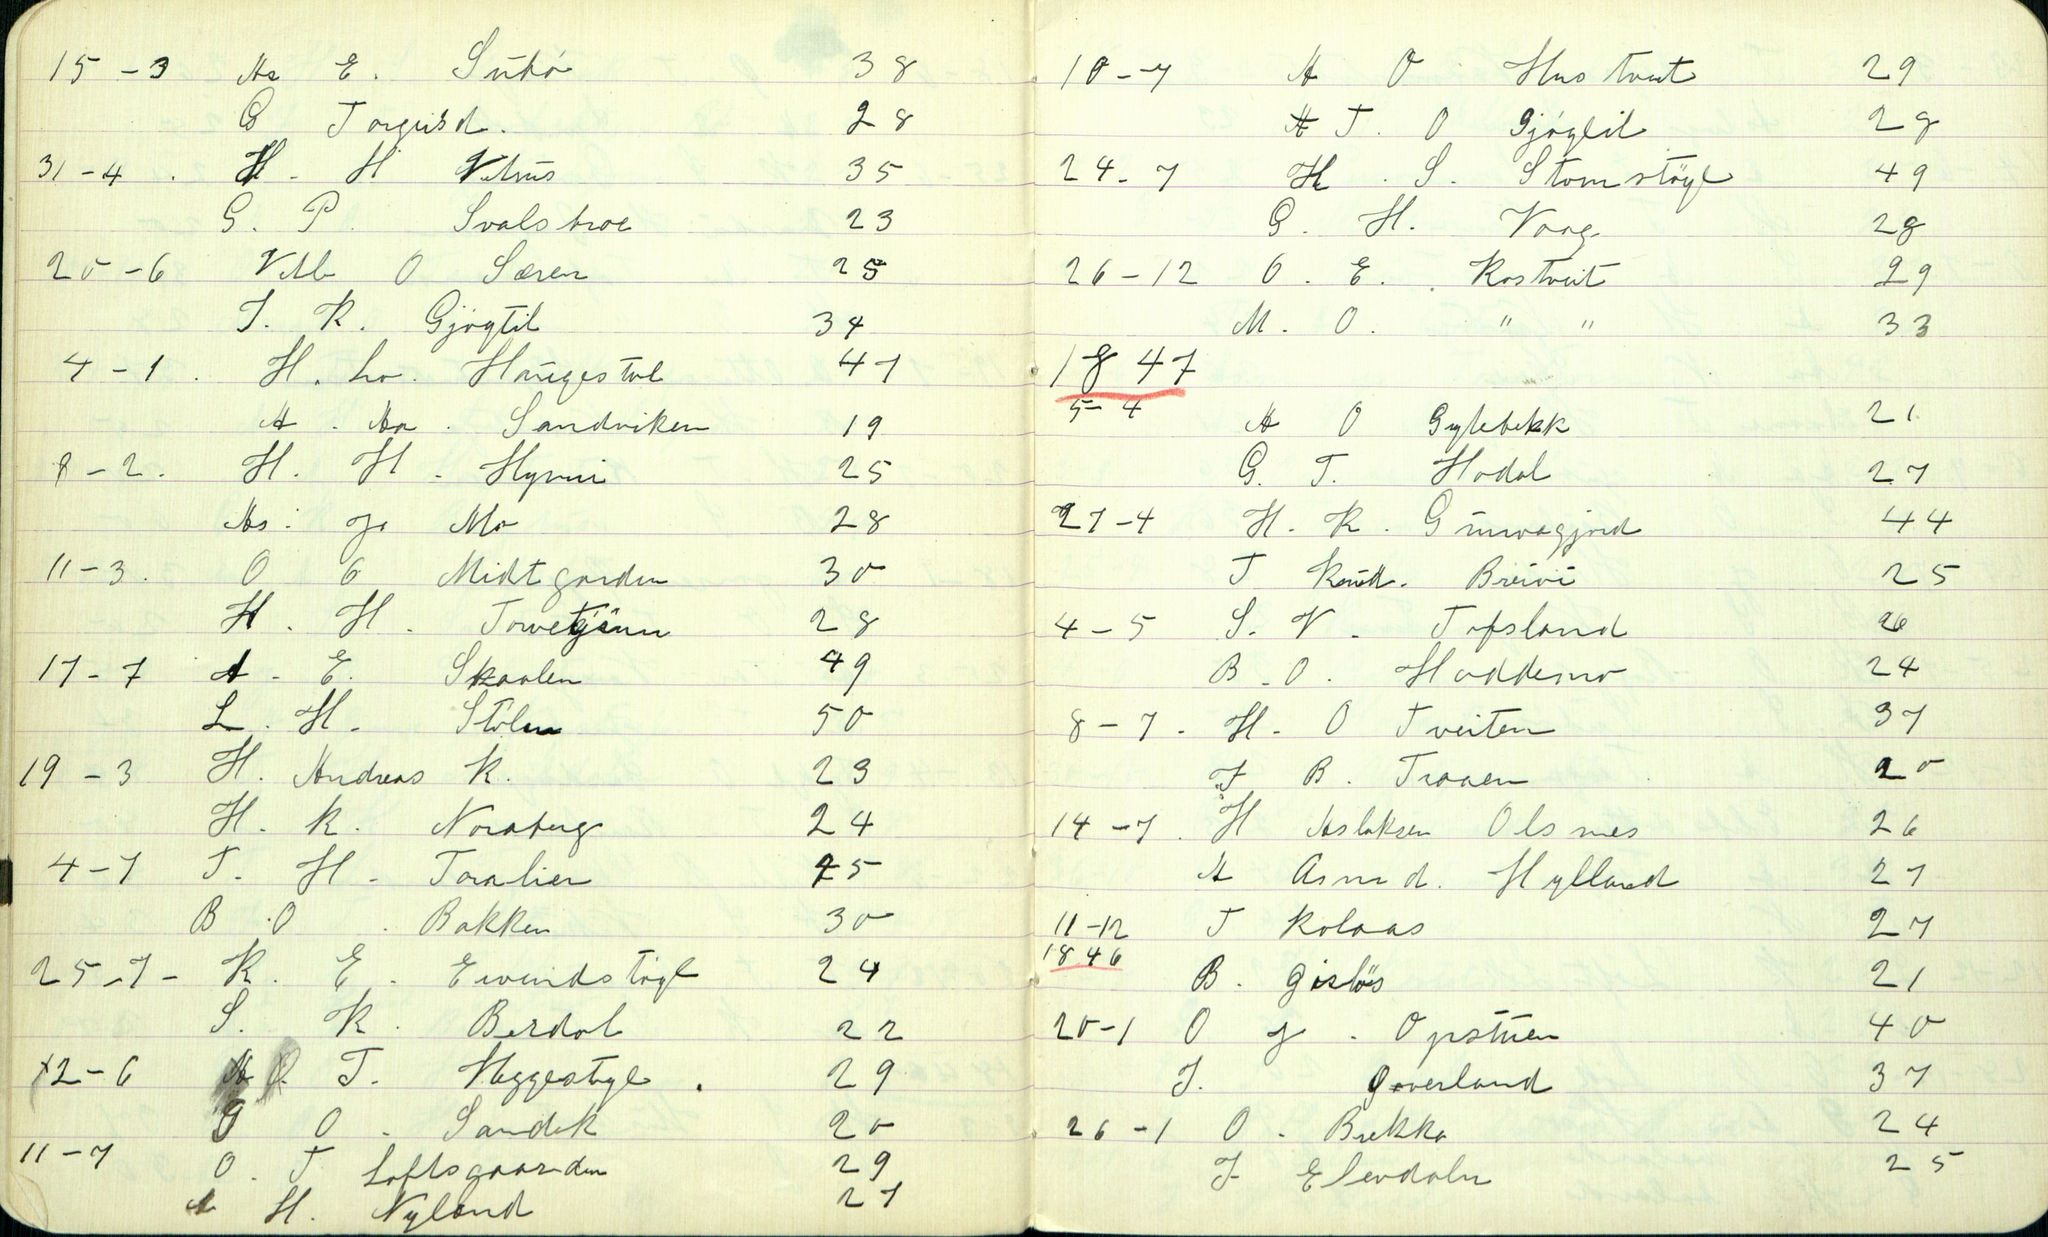 15-3 As E. Sübö 38
G Torgrisd. 28
31-4. H. H 35
G. P. Svalstroe 23
20-6 O Søren 25
T. K. Gjøgtil 34
4-1. H. Lo. Haugestul 47
A. Aa. Sandviken 19
8-2. H. H. Hynni 25
As. Jo Mo 28
11-3. O G Midtgarden 30
H. H. 28
17-7 A. E. Skaalen 49
L. H. Stölen 50
19-3 H. Andreas K. 23
H. K. Noraberg 24
4-7 T. H. Toralien 25
B O. Bakken 30
25-7- K. E. Eivindstögl 24
S. K. Berdal 22
12-6 O. T. Heggestyl. 29
G O. Sandok 20
11-7 O. T Loftsgaarden 29
A H. Nyland 27
10-7 A O Hustveit 29
A T. O Gjøgtil 28
24-7 H. S. Stomstögl 49
G. H. Vaag 28
26-12 O. E. Rostveit 29
M. O. " " 33
1847
5-4 A O Gylebekk 21
G. T. Hodal 27
27-4 H. K. 44
T Knud. Breivi 25
4-5 S. V. Tofsland 26
B. O. Hoddemo 24
8-7- H. O Tveiten 37
J B. Traaen 20
14-7. H Aslaksen Olsnes 26
A Asmd. Hylland 27
11-12 T Kolaas 27
1846
B. Gisløs 21
20-1 O J. Opstuen 40
J. Gaverland 37
26-1 O. Brekka 24
J 25